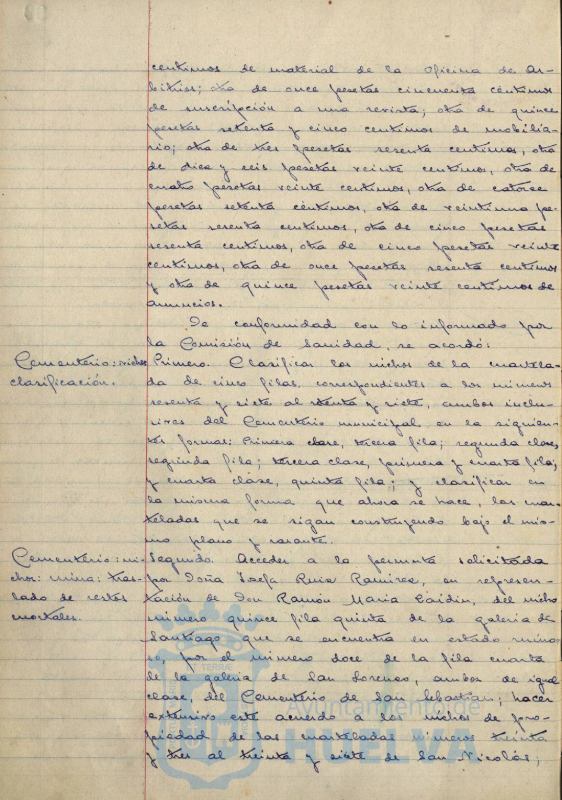 centimos de material de la Oficina de Ar-
bitrios; otra de once pesetas cincuenta centimos
de suscripción a una revista; otra de quince
pesetas setenta y cinco centimos de mobilia-
rio; otra de tres pesetas sesenta centimos, otra
de diez y seis pesetas veinte centimos, otra de
cuatro pesetas veinte centimos, otra de catorce
pesetas setenta centimos, otra de veintiuna pe-
setas sesenta centimos, otra de cinco pesetas
sesenta centimos, otra de cinco pesetas veinte
centimos, otra de once pesetas sesenta centimos
y otra de quince pesetas veinte centimos de
anuncios.
De conformidad con lo informado por
la Comisión de Sanidad, se acordó:
Cementerio: nichos
clasificación.
Primero. Clasificar los nichos de la cuartela-
da de cinco filas, correspondientes a los números
sesenta y siete al y siete, ambos inclu-
sives del Cementerio municipal, en la siguien-
tes forma: Primera clase, tercera fila; segunda clase,
segunda fila; tercera clase, primera y cuarta fila;
y cuarta clase, quinta fila; y clasificar en
la misma forma que ahora se hace, las cuar-
teladas que se sigan construyendo bajo el mis-
mo plano y rasante.
Cementerio: ni-
chos: ruina: tras-
lado de restos
mortales.
Segundo. Acceder a la permuta solicitada
por Doña Josefa Ruiz Ramirez, en represen-
tación de Don Ramón Maria, del nicho
número quince fila quinta de la galeria de
Santiago que se encuentra en estado ruino
so, por el número doce de la fila cuarta
de la galeria de San Lorenzo, ambos de igual
clase, del Cementerio de San Sebastián; hacer
extensivo este acuerdo a los nichos de pro-
piedad de las cuarteladas números treinta
y tres al treinta y siete de San Nicolás;
Ayuntamiento de
HUELVA